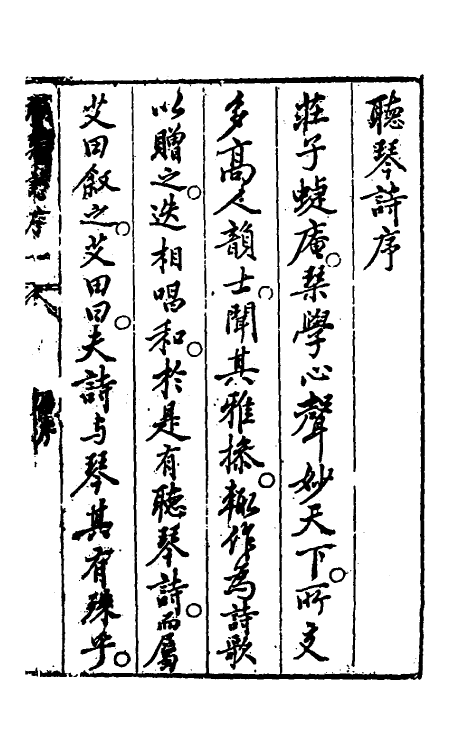 聽琴詩序
莊子蜨庵。琹學心聲妙天下。所交
多高人韻士。聞其雅操。輒作為詩歌
以贈之。迭相唱和。於是有聽琴詩。而屬
艾田敘之。艾田曰。夫詩与琴其有殊乎。
詩序 一